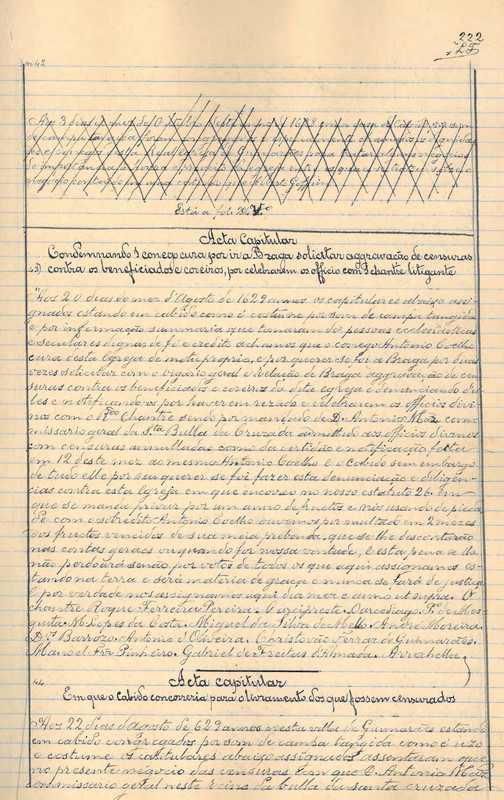 222
nº 42
Está a fol. 284 vto
Acta Capitular
Condemnando 1 conego cura por ir a Braga solicitar aggravação de censuras
43) contra os beneficiados e coreiros, por celebrarem os officio com 1 chantre litigante
"Aos 20 dias do mez d'Agosto de 1629 annos os capitulares abaixo assi-
gnados estando em cabido como é costume por som de campa tangida
e por informação summaria que tomaram de pessoas ecclesiasticas
e seculares dignas de fé e credito achamos que o conego Antonio Coelho
cura desta Egreja de motu proprio, e por querer se foi a Braga por duas
vezes solicitar com o vigario geral e Relação de Braga aggravação de cen-
suras contra os beneficiados e coreiros da dita egreja e denunciando d'el-
les e notificando-os por haverem rezado e celebraram os officios divi-
nos com o Rdo Chantre sendo por mandado de D. Antonio Maz com-
missario geral da Sta Bulla da Cruzada admittido aos officios divinos
com censuras annulladas como da certidão e notificação feita
em 12 deste mez ao mesmo Antonio Coelho e o cabido sem embargo
de tudo elle por seu querer se foi fazer esta denunciação e diligen-
cias contra esta Egreja em que encoreo no nosso estatuto 26 em
que se manda privar por um anno de fructos e nós usando de pieda-
de com o sobredito Antonio Coelho ouvemos por multado em 2 mezes
dos fructos vencidos de sua meia prebenda, que se lhe descontarão
nas contas geraes ou quando for nossa vontade, e esta pena se lhe
não perdoará senão por votos de todos os que aqui assignamos es-
tando na terra e será materia de graça e nunca se fará de justiça
e por verdade nos assignamos aqui dia mez e anno ut supra. O
chantre Roque Ferreira Pereira. O arcipreste Darcediago. Fr. de Mes-
quita. M. Lopes da Costa. Miguel da Silva de Mello. André Moreira.
Ds Barrozo. Antonio d'Oliveira. Christovão Ferraz de Guimarães.
Manoel Frz Pinheiro. Gabriel de Freitas d'Amada. Arrabella.
44 Acta capitular
Em que o Cabido concorreria para o livramento dos que fossem censurados
"Aos 22 dias d'agosto de 629 annos nesta villa de Guimarães estando
em cabido congregados por som de campa tangida como é uzo
e costume os capitulares abaixo assignados assentaram que
no presente negocio das censuras em que D. Antonio Maz
commissario geral neste reino da bulla da santa cruzada